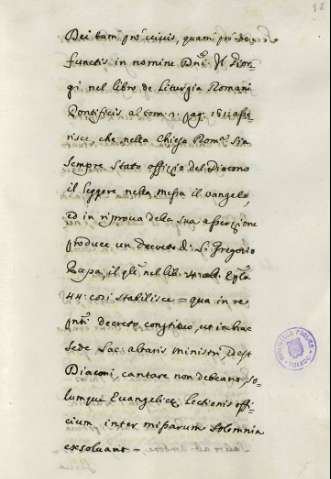 Dei tam pro vivis, quam pro de=
functis in nomine Dni: Il Gior=
gi nel libro de Liturgia Romani
Pontificis al tom: 1. pag: asse=
risce, che nella Chiesa Rom.a sia
sempre stato offizio del Diacono
il leggere nella messa il vangelo,
ed in riprova della sua asserzione
produce un decreto di S. Gregorio
Papa, il q.le nel lib: 4:
44: così stabilisce = qua in re
pnti decreto constituo, ut in hac
Sede Sac: altaris ministri, idest
Diaconi, cantare non debeant so=
lumque Evangelicae lectionis offi=
cium inter missarum solemnia
exsolvant =